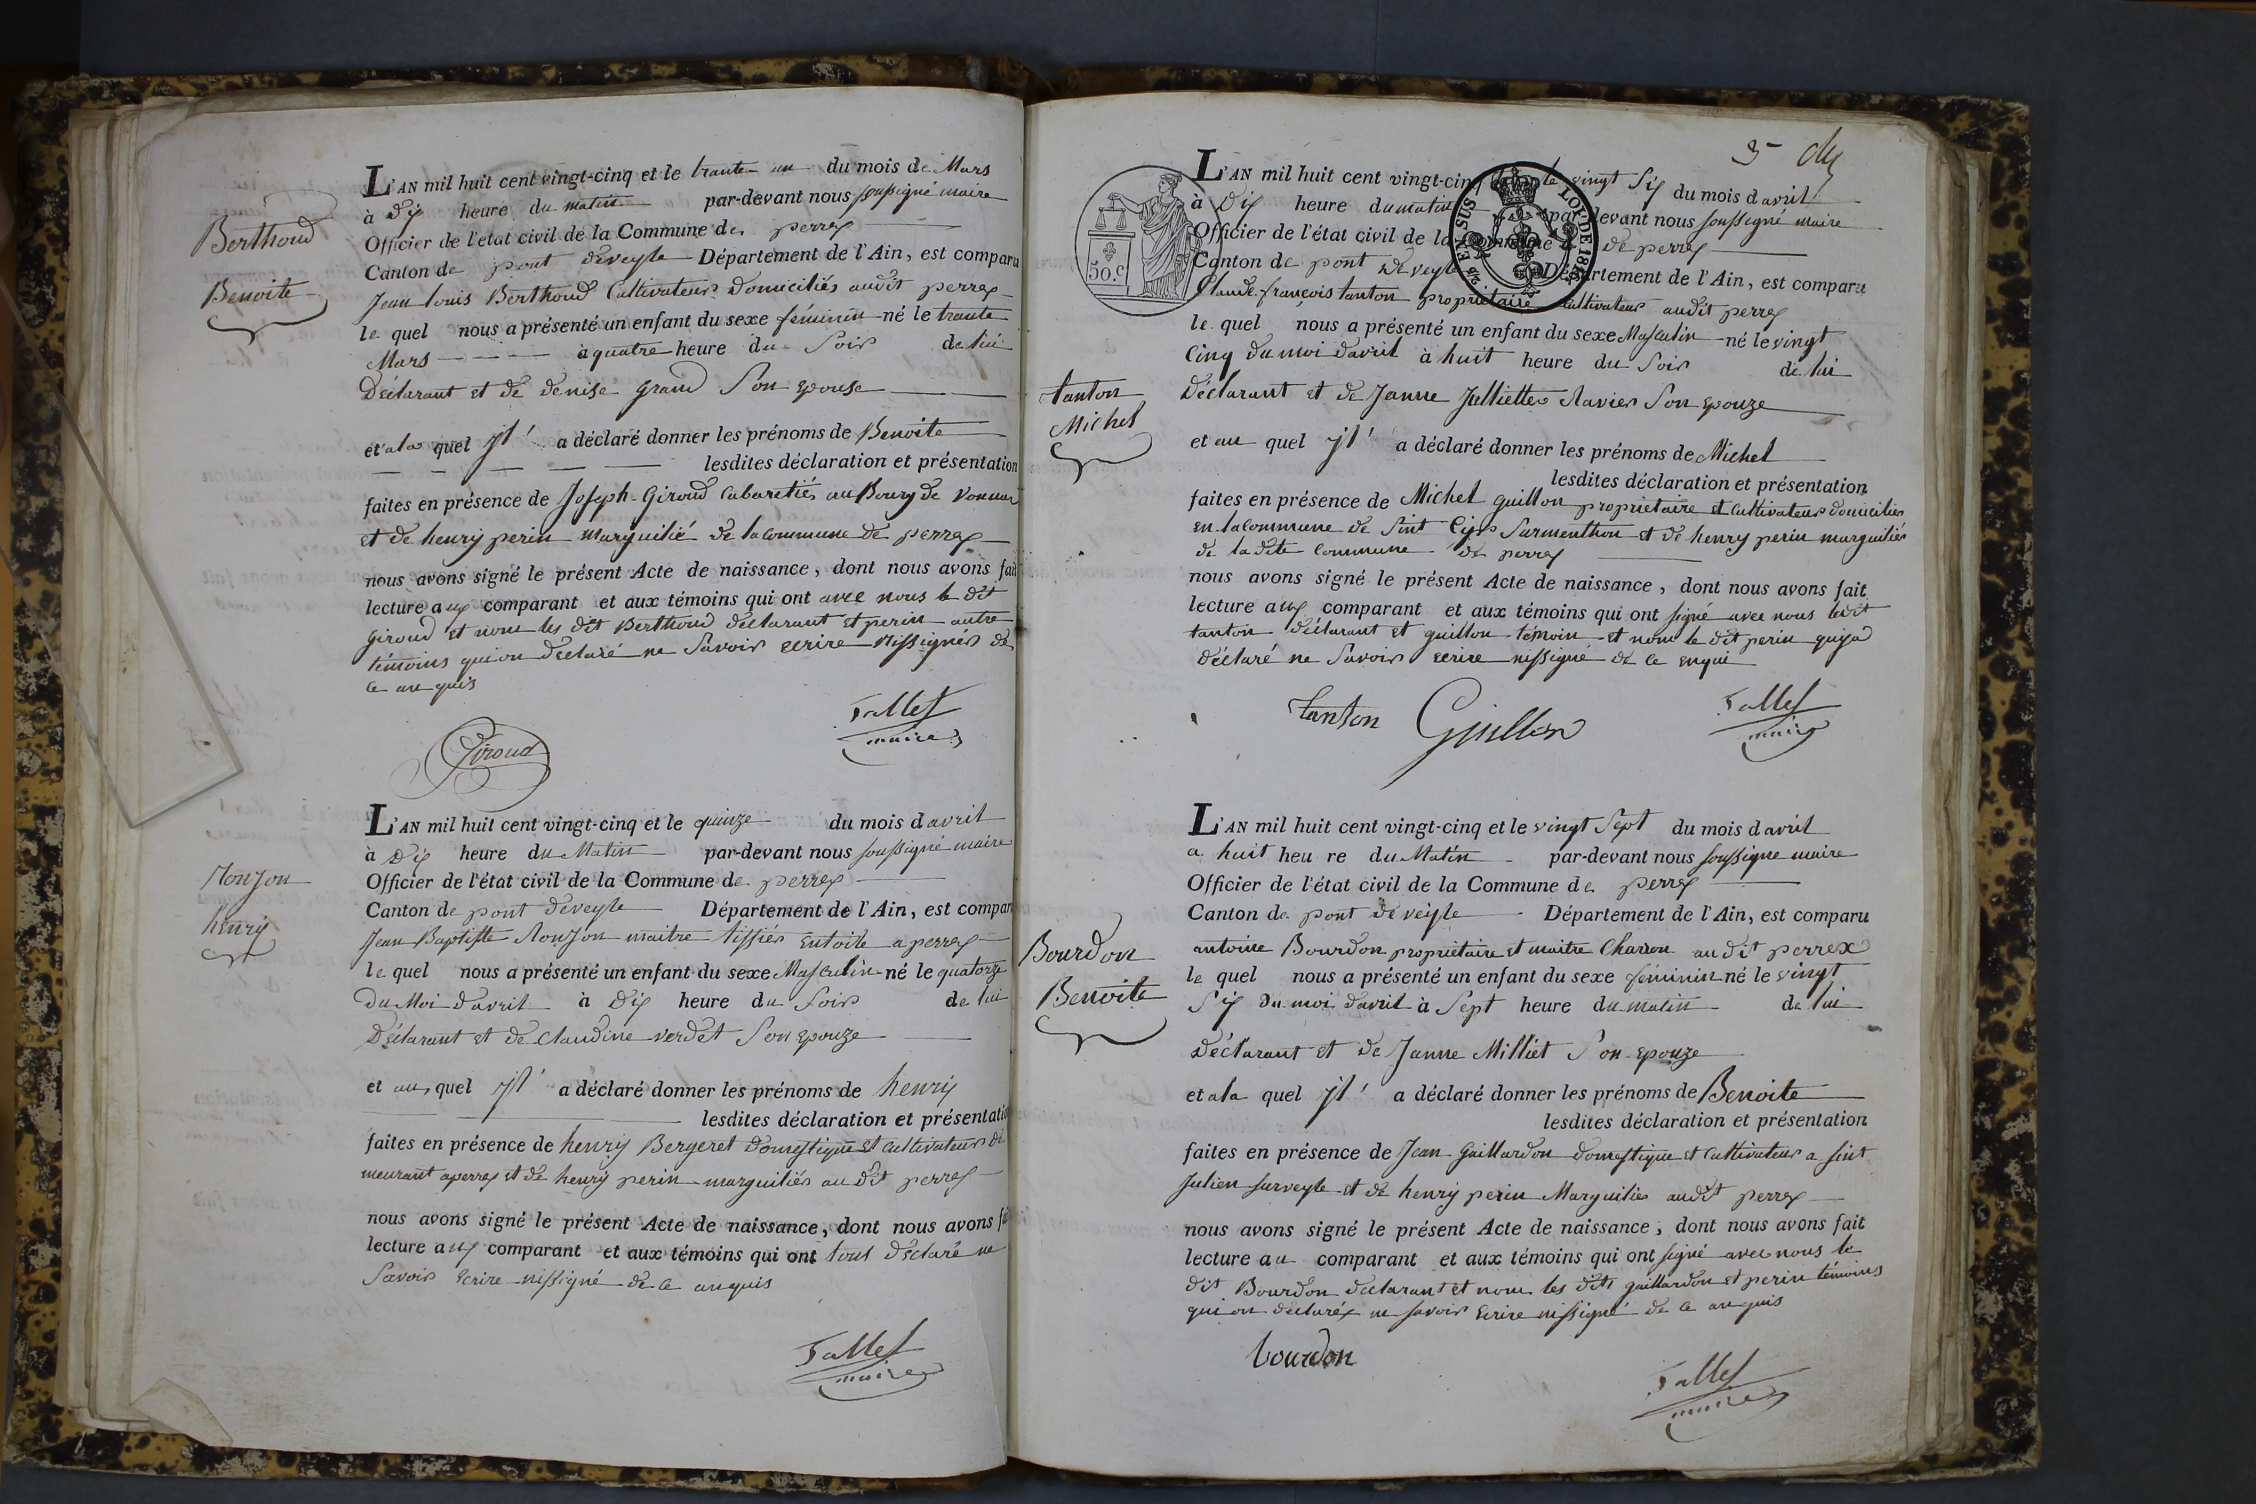 Berthoud
Benoite
L'AN mil huit cent vingt-cinq et le trante un du mois de Mars
à Dix heure du matin par-devant nous soussigné maire
Officier de l'état civil de la Commune de perrex
Canton de pont deveyle Département de l'Ain, est comparu
Jean Louis Berthoud Cultivateur Domiciliés audit perrex
le quel nous a présenté un enfant du sexe féminin né le trante
Mars à quatre heure du Soir de lui
Déclarant et de denise grand Son epouse
et ala quel yl a déclaré donner les prénoms de Benoite
lesdites déclaration et présentation
faites en présence de Joseph Giroud Cabaretiés au Bourg de vonnas
et de henry perin marguilié de la commune de perrex
nous avons signé le présent Acte de naissance, dont nous avons fait
lecture aux comparant et aux témoins qui ont avec nous le dit
Giroud et nom les dit Berthoud déclarant et perin autre
témoins quion declaré ne Savoir ecrire nissignér de
ce anquis
Giroud
Tallet
maire
Monjon
henry
L'AN mil huit cent vingt-cinq et le quinze du mois davril
à Dix heure du Matin par-devant nous soussigné maire
Officier de l'état civil de la Commune de perrex
Canton de pont deveyle Département de l'Ain, est compar
Jean Baptiste Monjon maitre tissiér entoile a perrex
le quel nous a présenté un enfant du sexe Masculin né le quatorze
du Moi davril à Dix heure du Soir de lui
Déclarant et de Claudine verdet Son epouze
et au quel yl a déclaré donner les prénoms de henry
lesdites déclaration et présentatio
faites en présence de henry Bergeret Domestique et Cultivateur de
meurant aperrex et de henry perin marguiliér au dit perrex
nous avons signé le présent Acte de naissance, dont nous avons fa
lecture aux comparant et aux témoins qui ont tous déclaré ne
Savoir Ecrire nissigné de ce anquis
Tallet
maire
5
50.c
EN SUS
LOI DE 1816
tanton
Michel
L'AN mil huit cent vingt-cinq et le vingt Six du mois davril
à Dix heure du matin par-devant nous soussigné maire
Officier de l'état civil de la Commune de perrex
Canton de pont Deveyle Département de l'Ain, est comparu
Claude françois tanton propriétaire Cultivateur audit perrex
le quel nous a présenté un enfant du sexe Masculin né le vingt
Cinq du moi davril à huit heure du Soir de lui
Déclarant et de Janne Julliette Ravier Son epouze
et au quel yl a déclaré donner les prénoms de Michel
lesdites déclaration et présentation
faites en présence de Michel guillon propriétaire et Cultivateur domiciliér
en la commune de Sint Cyr Surmenthon et de henry perin marguiliér
de la dite Commune de perrex
nous avons signé le présent Acte de naissance, dont nous avons fait
lecture aux comparant et aux témoins qui ont signé avec nous ledit
tanton déclarant et guillon témoin et nom le dit perin quya
déclaré ne Savoir ecrire nissigné de ce enqui
tanton
Guillon
Tallet
maire
Bourdon
Benoite
L'AN mil huit cent vingt-cinq et le vingt Sept du mois davril
a huit heu re du Matin par-devant nous soussigne maire
Officier de l'état civil de la Commune de perrex
Canton de pont de veyle Département de l'Ain, est comparu
antoine Bourdon propriétaire et maitre Charron audit perrex
le quel nous a présenté un enfant du sexe féminin né le vingt
Six du moi davril à Sept heure du matin de lui
Déclarant et de Janne Milliet Son epouze
et ala quel yl a déclaré donner les prénoms de Benoite
lesdites déclaration et présentation
faites en présence de Jean Gaillardon domestique et Cultivateur a sint
Julien surveyle et de henry perin Marguilier audit perrex
nous avons signé le présent Acte de naissance, dont nous avons fait
lecture au comparant et aux témoins qui ont signé avec nous le
dit Bourdon declarant et nom les dits gaillardon et perin témoins
qui on déclarér ne savoir Ecrire nissigné de ce anquis
bourdon
Tallet
maire